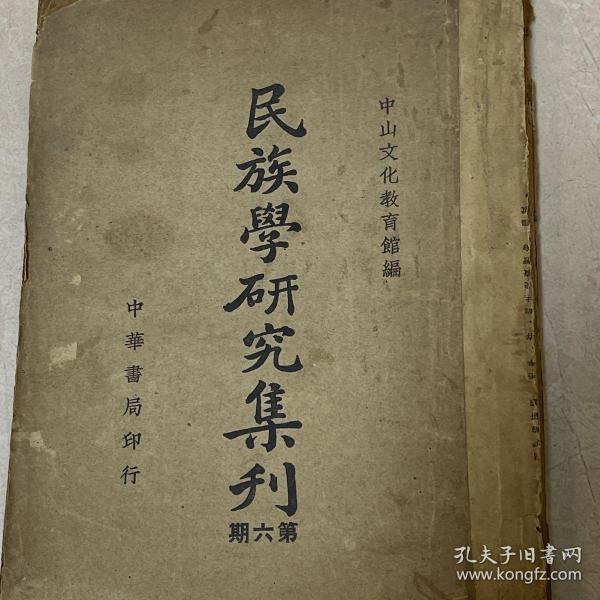 中山文化教育館編
民族學研究集刊
第六期
中華書局印行
孔夫子旧書网
www.kongfz.com